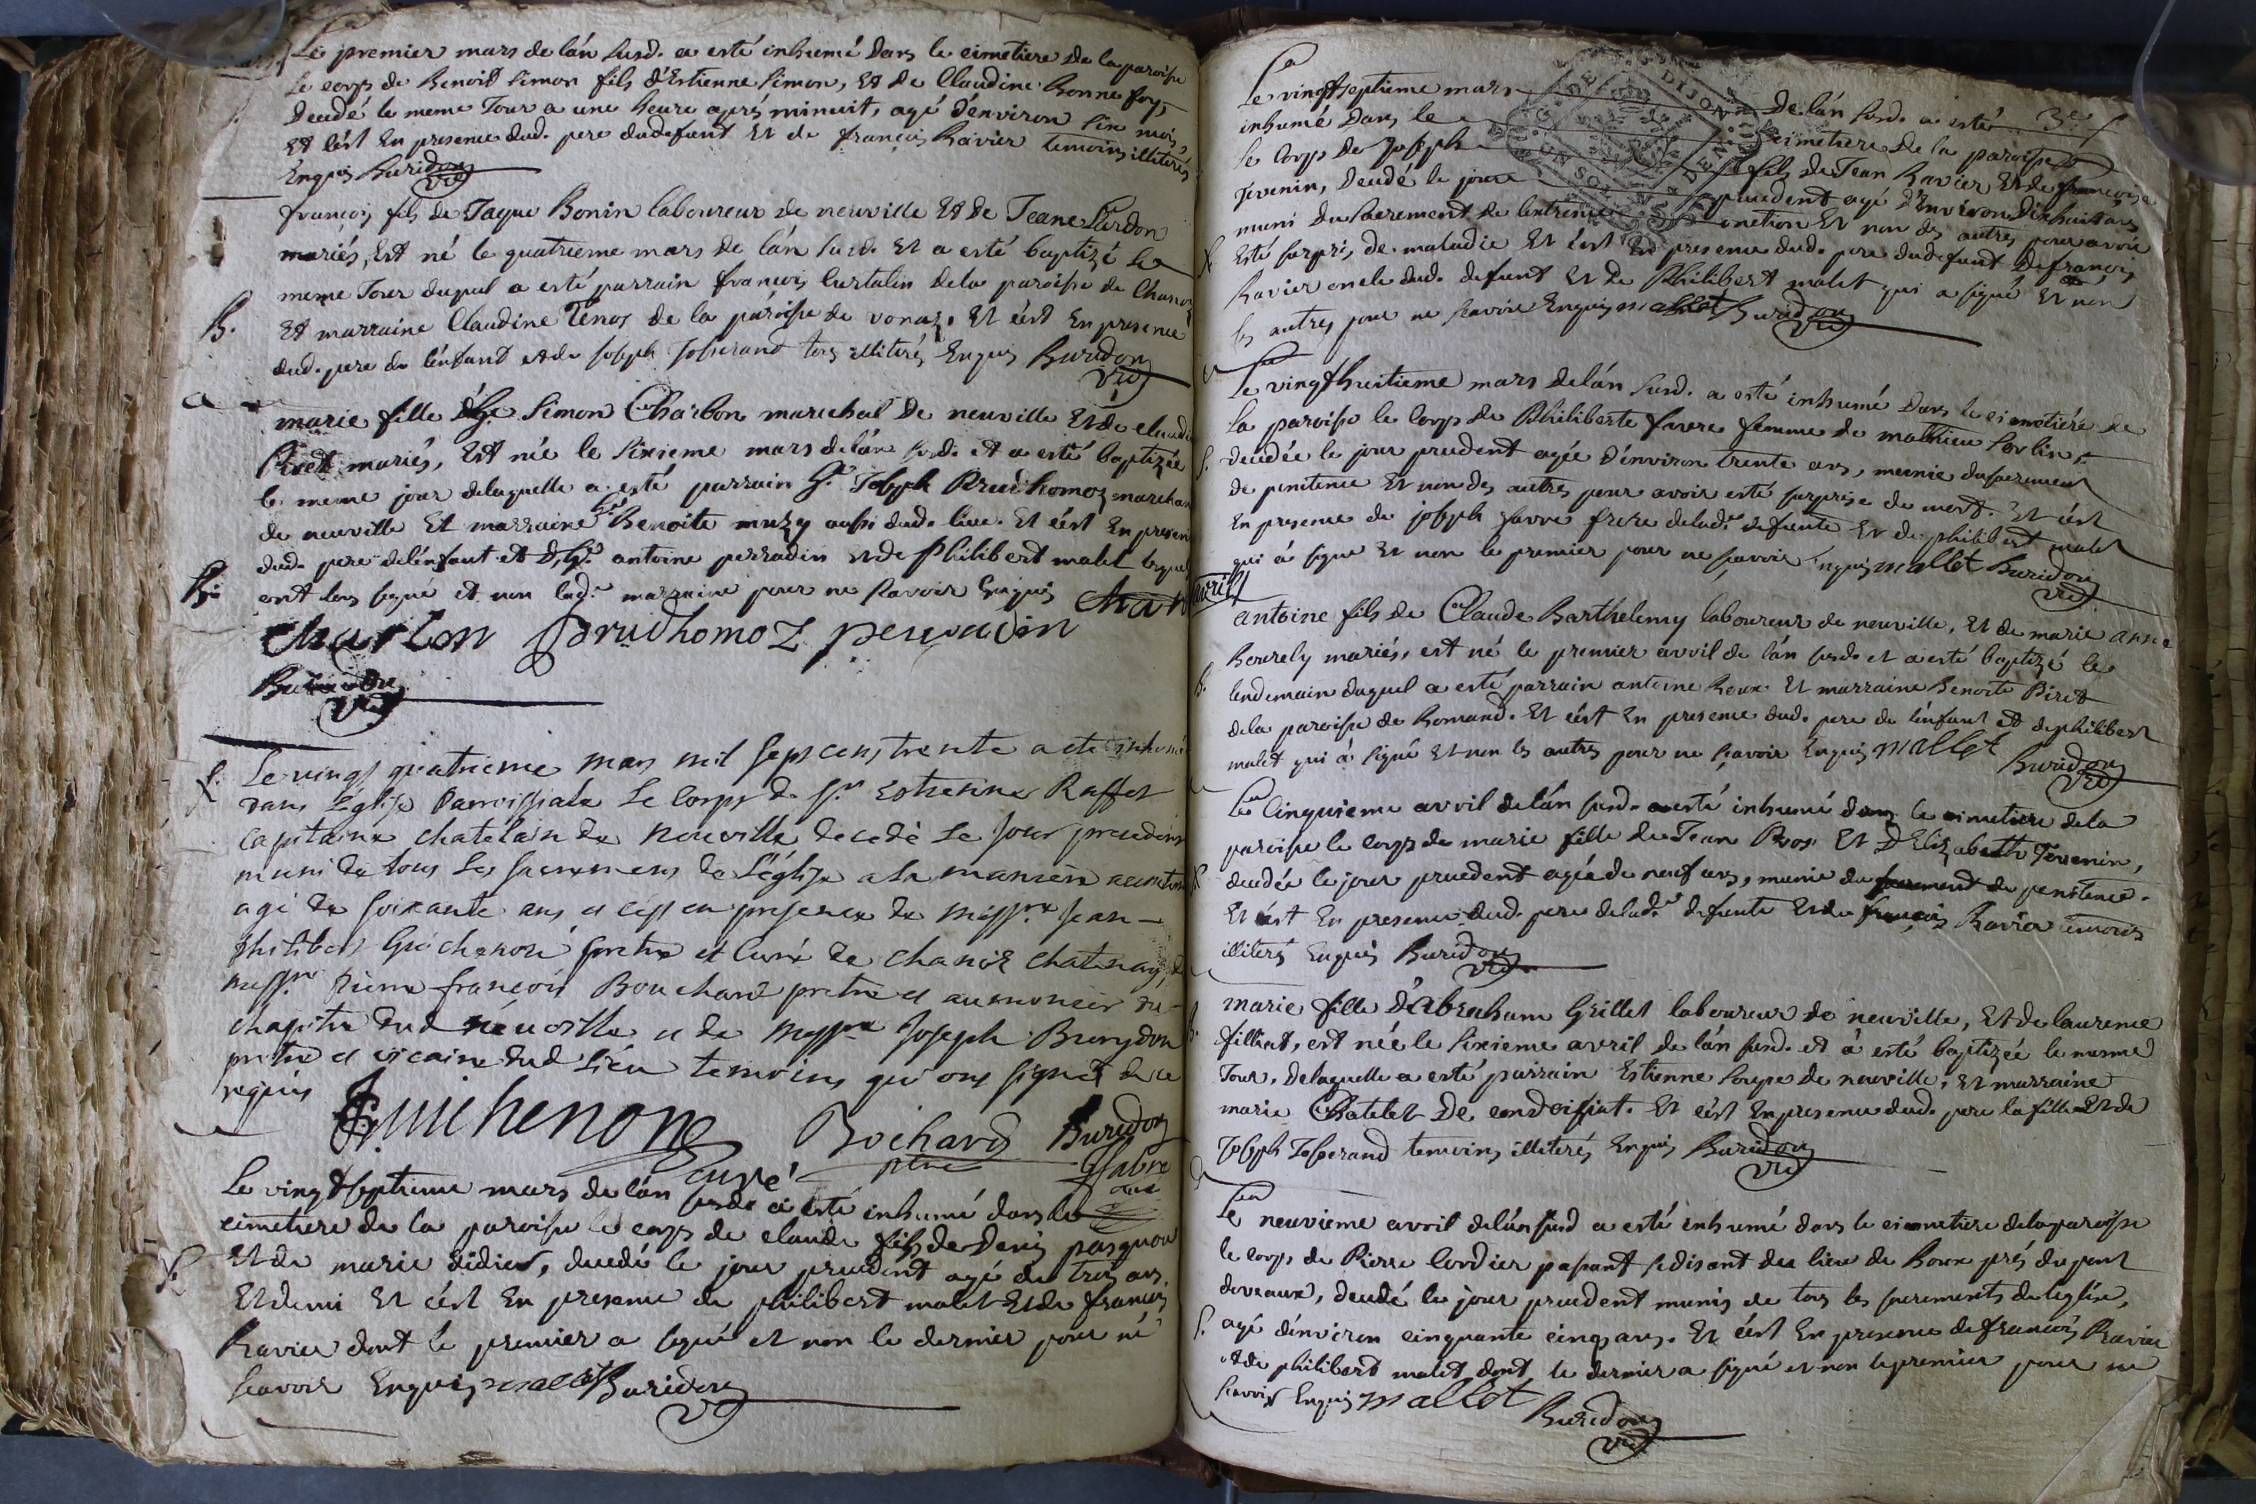 Le premier mars de lán susd. a esté inhumé dans le cimetiere de la paroisse
le corps de Benoist Simon fils d'Estienne Simon, Et de Claudine Bonne foy,
Decedé le meme Jour a une heure aprés minuit, agé d'environ six mois,
Et c'est En presence dud. pere dud defunt Et de françois Ravier temoins illiterés
Enquis Buridon vic.
S.
françois fils de Jaque Bonin laboureur de neuville Et de Jeane Lardon
mariés, Est né le quatrieme mars de lán susd. Et a esté baptizé le
meme Jour duquel a esté parrain françois Curtalin de la paroisse de
Et marraine Claudine Tenos de la paroisse de vonaz. Et c'est En presence
B.
dud. pere de l'enfant et de Joseph Josserand tous illiterés Enquis Buridon vic.
marie fille de Sr. Simon Charlon marechal de neuville Et de
Piret mariés, Est née le sixieme mars de lán susd. et a esté baptizée
le meme jour de laquelle a esté parrain Sr. Joseph Prudhomoz
de neuville Et marraine Benoite muzy aussi dud. lieu. Et c'est En
dud. pere de lénfant et de Sr. antoine perradin et de Philibert malet
B.
ont tous signé et non lad. marraine pour ne scavoir Enquis
Charlon Prudhomoz perradin
Buridon vic.
S.
Le vingt quatrieme mars mil sept cens trente a ete inhumé
dans l'église Paroissiale Le Corps de Sr. Estienne Raffet
capitaine chatelain de Neuville decedé Le Jour precedent
muni de tous Les sacremens de L'église a la maniere
agé de soixante ans et c'est en presence de Messre. Jean
philibert Guichenon pretre et Curé de Chanoz Chatenay,
messre. Pierre françois Bouchard pretre et aumonier du
chapitre dud Neuville et de Messre Joseph Burydon
pretre et vicaire dud Lieu temoins qui ont signés de ce
requis
Guichenon curé Bochard ptre Buridon
S.
Le vingt septieme mars de lán susd. a esté inhumé dans le
cimetiere de la paroisse le corps de claude fils de Denis pasquou
Et de marie didier, decedé le jour precedent agé de trois ans.
Et demi Et c'est En presence de philibert malet Et de françois
Ravier dont le premier a signé et non le dernier pour ne
scavoir Enquis mallet Buridon vic.
Le vingt septieme mars de lán susd. a esté
inhumé dans le cimetiere de la paroisse
le corps de Joseph fils de Jean Ravier Et de françoise
Tevenin, decedé le jour precedent agé d'Environ dixhuit ans
muni du sacrement de lextreme onction Et non des autres pour avoir
Esté surpris de maladie Et c'est En presence dud. pere dud defunt de françois
Ravier oncle dud. defunt Et de Philibert malet qui a signé Et non
les autres pour ne scavoir Enquis mallet Buridon vic.
Le vingt huitieme mars de lán susd. a esté inhumé dans le cimetiere de
la paroisse le corps de Philiberte favre femme de mathieu
S.
decedée le jour precedent agée d'environ trente ans, meunie du sacrement
de penitence Et non des autres pour avoir esté surprise de mort. Et c'est
En presence de joseph favre frere de lade. defunte Et de philibert malet
qui á signé Et non le premier pour ne scavoir Enquis mallet Buridon vic.
avril
antoine fils de Claude Barthelemy laboureur de neuville, Et de marie anne
Bourely mariés, est né le premier avril de lán susd. et a esté baptizé le
B.
lendemain duquel a esté parrain antoine Et marraine Benoite Piret
de la paroisse de Romand. Et c'est En presence dud. pere de l'enfant et de philibert
malet qui á signé Et non les autres pour ne scavoir Enquis mallet
Buridon vic.
Le Cinquieme avril de lán susd. a esté inhumé dans le cimetiere de la
paroisse le corps de marie fille de Jean Et D'Elizabeth Tevenin,
decedée le jour precedent agée de neuf ans, munie du sacrement de penitence.
Et c'est En presence dud. pere de lade. defunte Et de françois Ravier temoins
illiterés Enquis Buridon vic.
B.
marie fille d'Abraham Grillet laboureur de neuville, Et de laurence
filliat, est née le sixieme avril de lán susd. et á esté baptizée le mesme
Jour, de laquelle a esté parrain Estienne de neuville, Et marraine
marie Chatelet De condeissiat. Et c'est En presence dud. pere la fille Et de
Joseph Josserand temoins illiterés Enquis Buridon vic.
Le neuvieme avril de lán susd a esté inhumé dans le cimetiere de la paroisse
le corps de Pierre Cordier passant se disant du lieu de prés du pont
devaux, decedé le jour precedent munis de tous les sacrements de leglise,
S.
agé d'environ cinquante cinq ans. Et c'est En presence de françois Ravier
et de philibert malet, dont le dernier a signé et non le premier pour ne
scavoir Enquis mallet
Buridon vic.